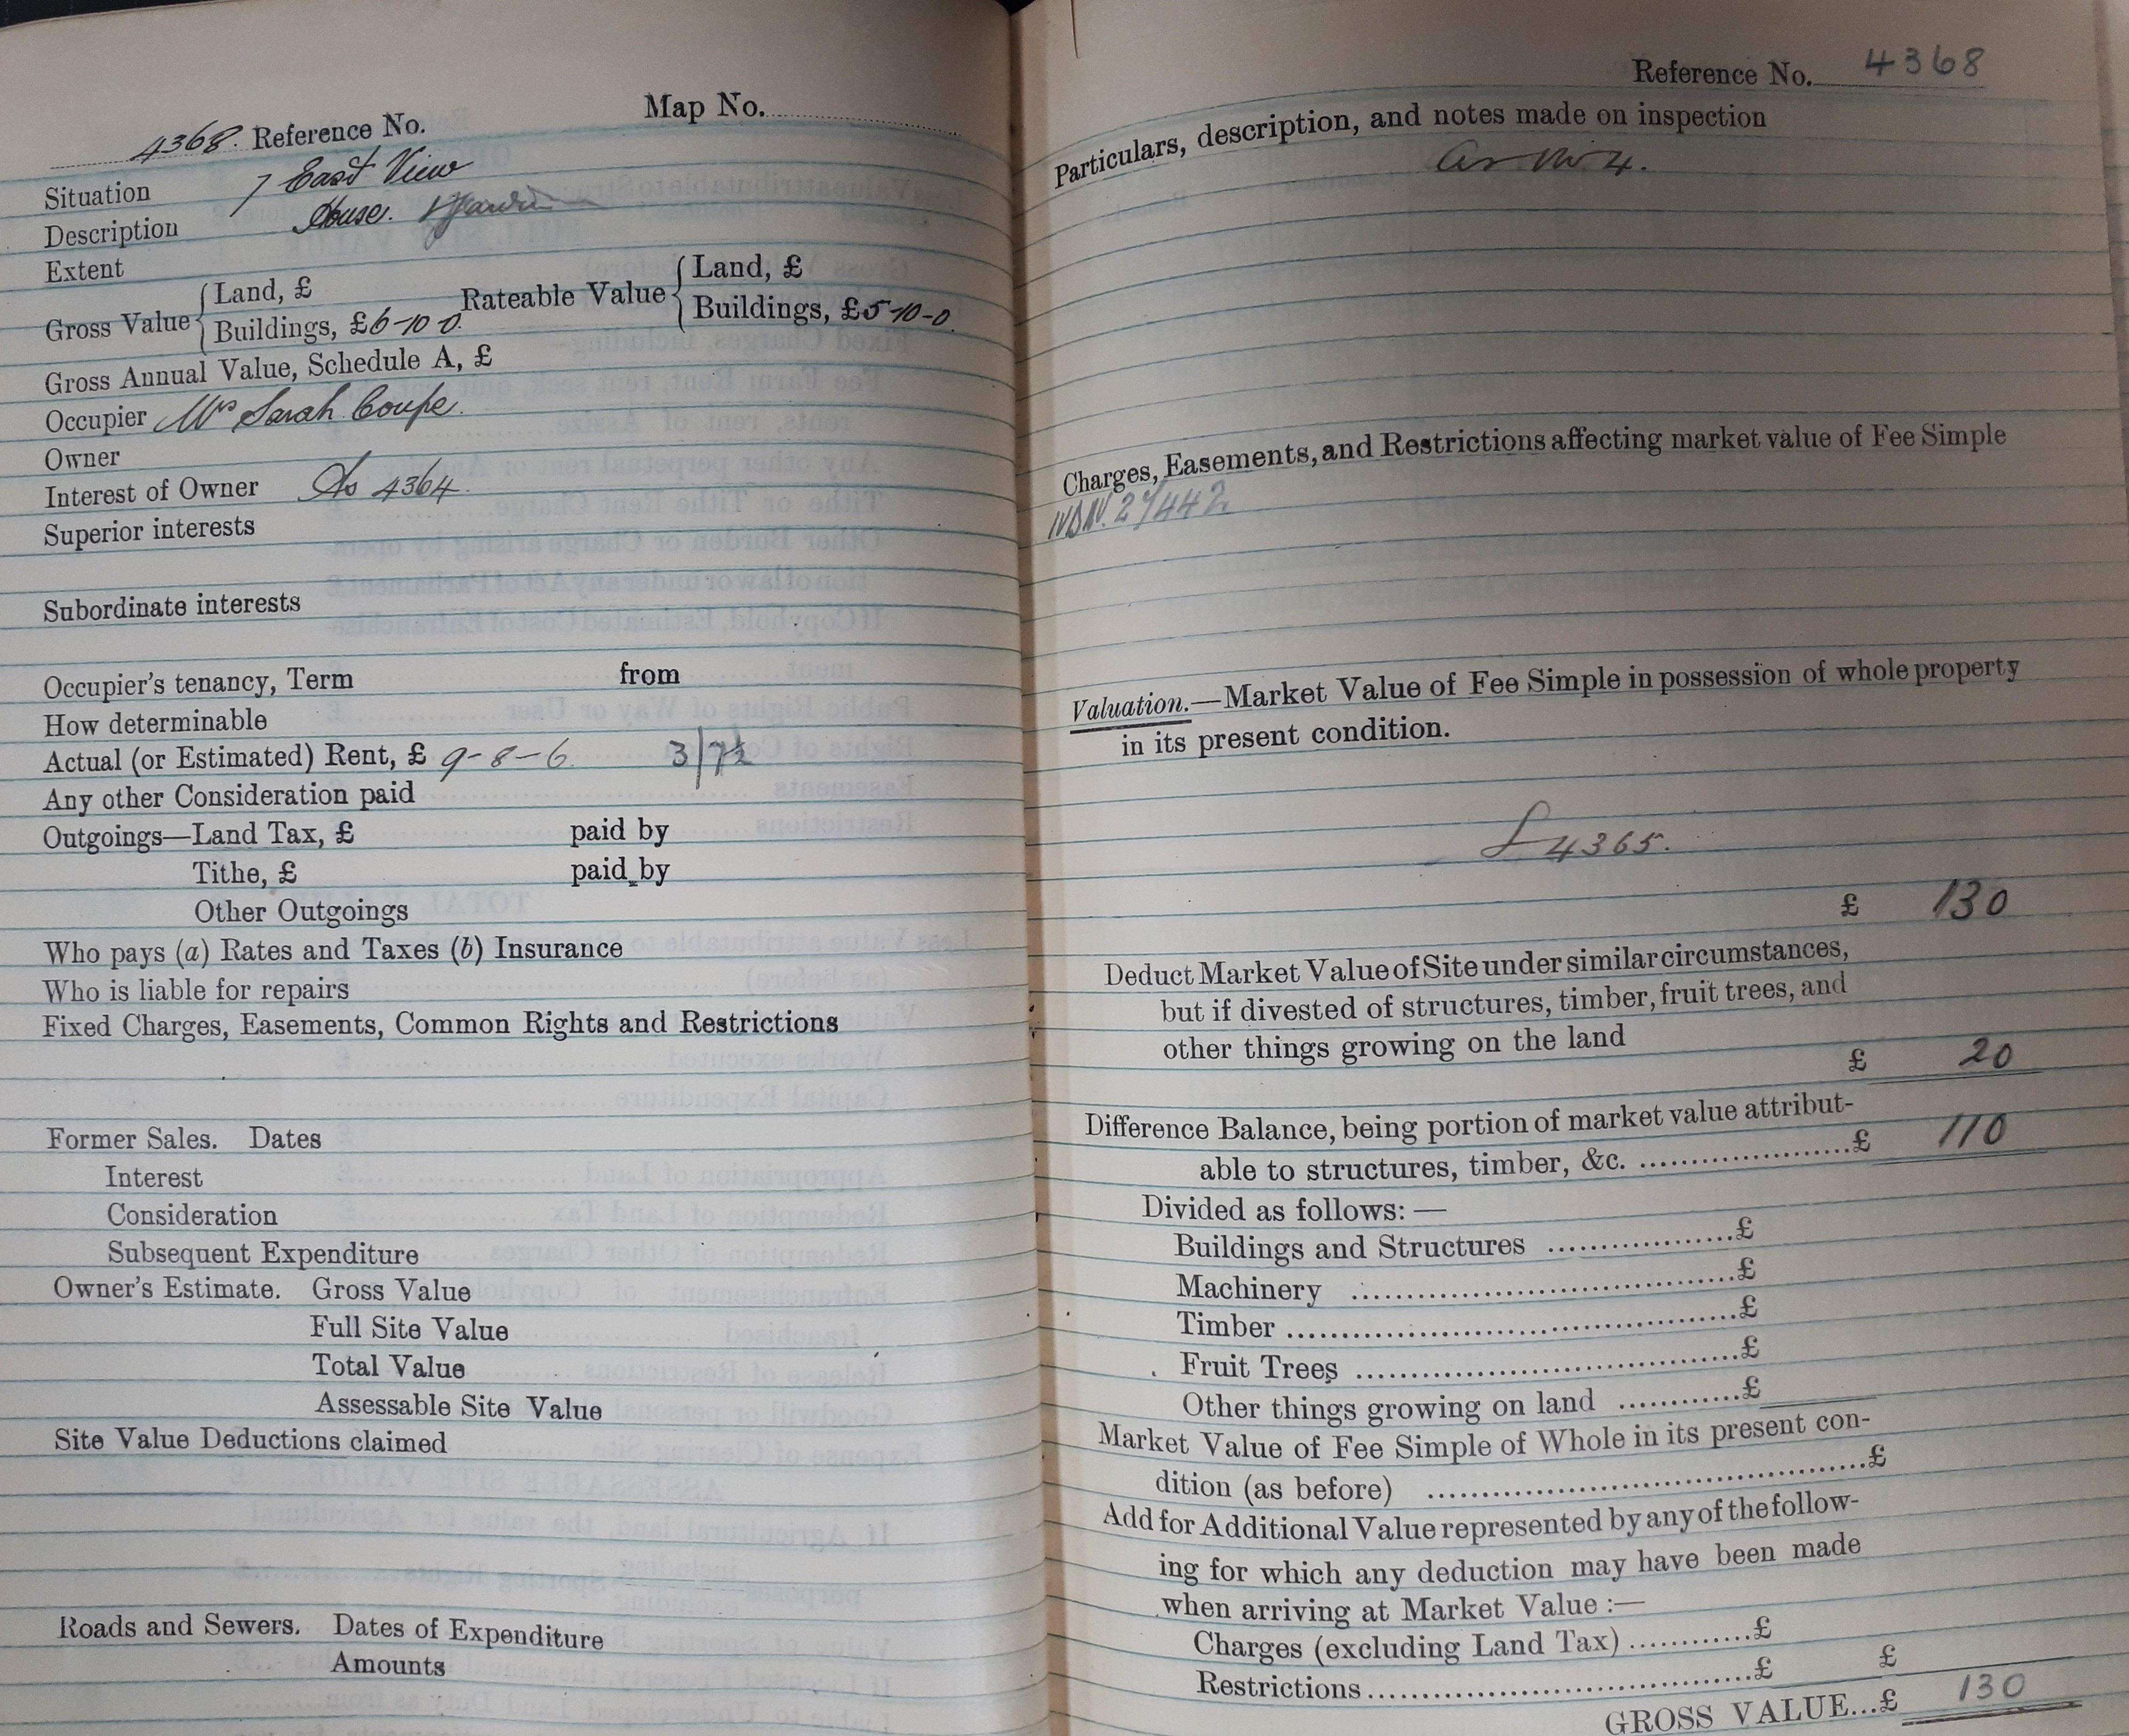 Map No.
4368. Reference No.
Situation 7 East View
Description House.
Extent
Gross Value { Land, £ Rateable Value { Land, £
Buildings, £6-10-0. Buildings, £5-10-0.
Gross Annual Value, Schedule A, £
Occupier Mrs Sarah Coupe.
Owner
Interest of Owner As 4364.
Superior interests
Subordinate interests
Occupier's tenancy, Term from
How determinable
Actual (or Estimated) Rent, £ 9-8-6. 3/7½
Any other Consideration paid
Outgoings—Land Tax, £ paid by
Tithe, £ paid by
Other Outgoings
Who pays (a) Rates and Taxes (b) Insurance
Who is liable for repairs
Fixed Charges, Easements, Common Rights and Restrictions
Former Sales. Dates
Interest
Consideration
Subsequent Expenditure
Owner's Estimate. Gross Value
Full Site Value
Total Value
Assessable Site Value
Site Value Deductions claimed
Roads and Sewers. Dates of Expenditure
Amounts
Reference No. 4368
Particulars, description, and notes made on inspection
as No. 4.
Charges, Easements, and Restrictions affecting market value of Fee Simple
Valuation.—Market Value of Fee Simple in possession of whole property
in its present condition.
£4365.
£ 130
Deduct Market Value of Site under similar circumstances,
but if divested of structures, timber, fruit trees, and
other things growing on the land
£ 20
Difference Balance, being portion of market value attribut-
able to structures, timber, &c. ....................£ 110
Divided as follows: —
Buildings and Structures ..................£
Machinery ..................£
Timber ..................£
Fruit Trees ..................£
Other things growing on land ...........£
Market Value of Fee Simple of Whole in its present con-
dition (as before) ..................£
Add for Additional Value represented by any of the follow-
ing for which any deduction may have been made
when arriving at Market Value :—
Charges (excluding Land Tax) ............£
Restrictions..................£ £
GROSS VALUE...£ 130